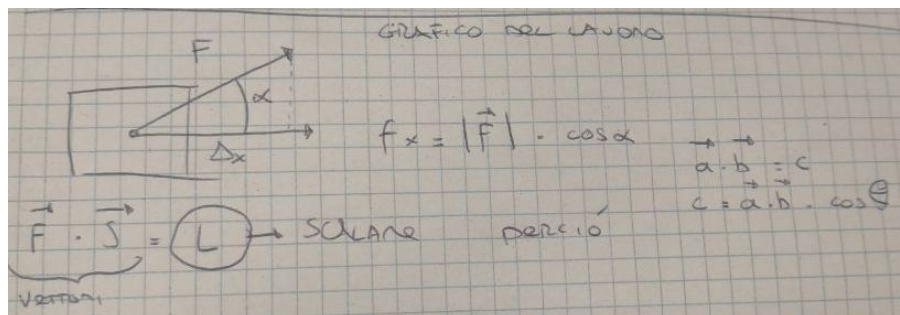 GRAFICO DEL LAVORO
F
α
Δx
fx = |F⃗| · cosα
a⃗ · b⃗ = c
c = a⃗ · b⃗ · cosθ
F⃗ · S⃗ = L → SCALARE perció
VETTORI